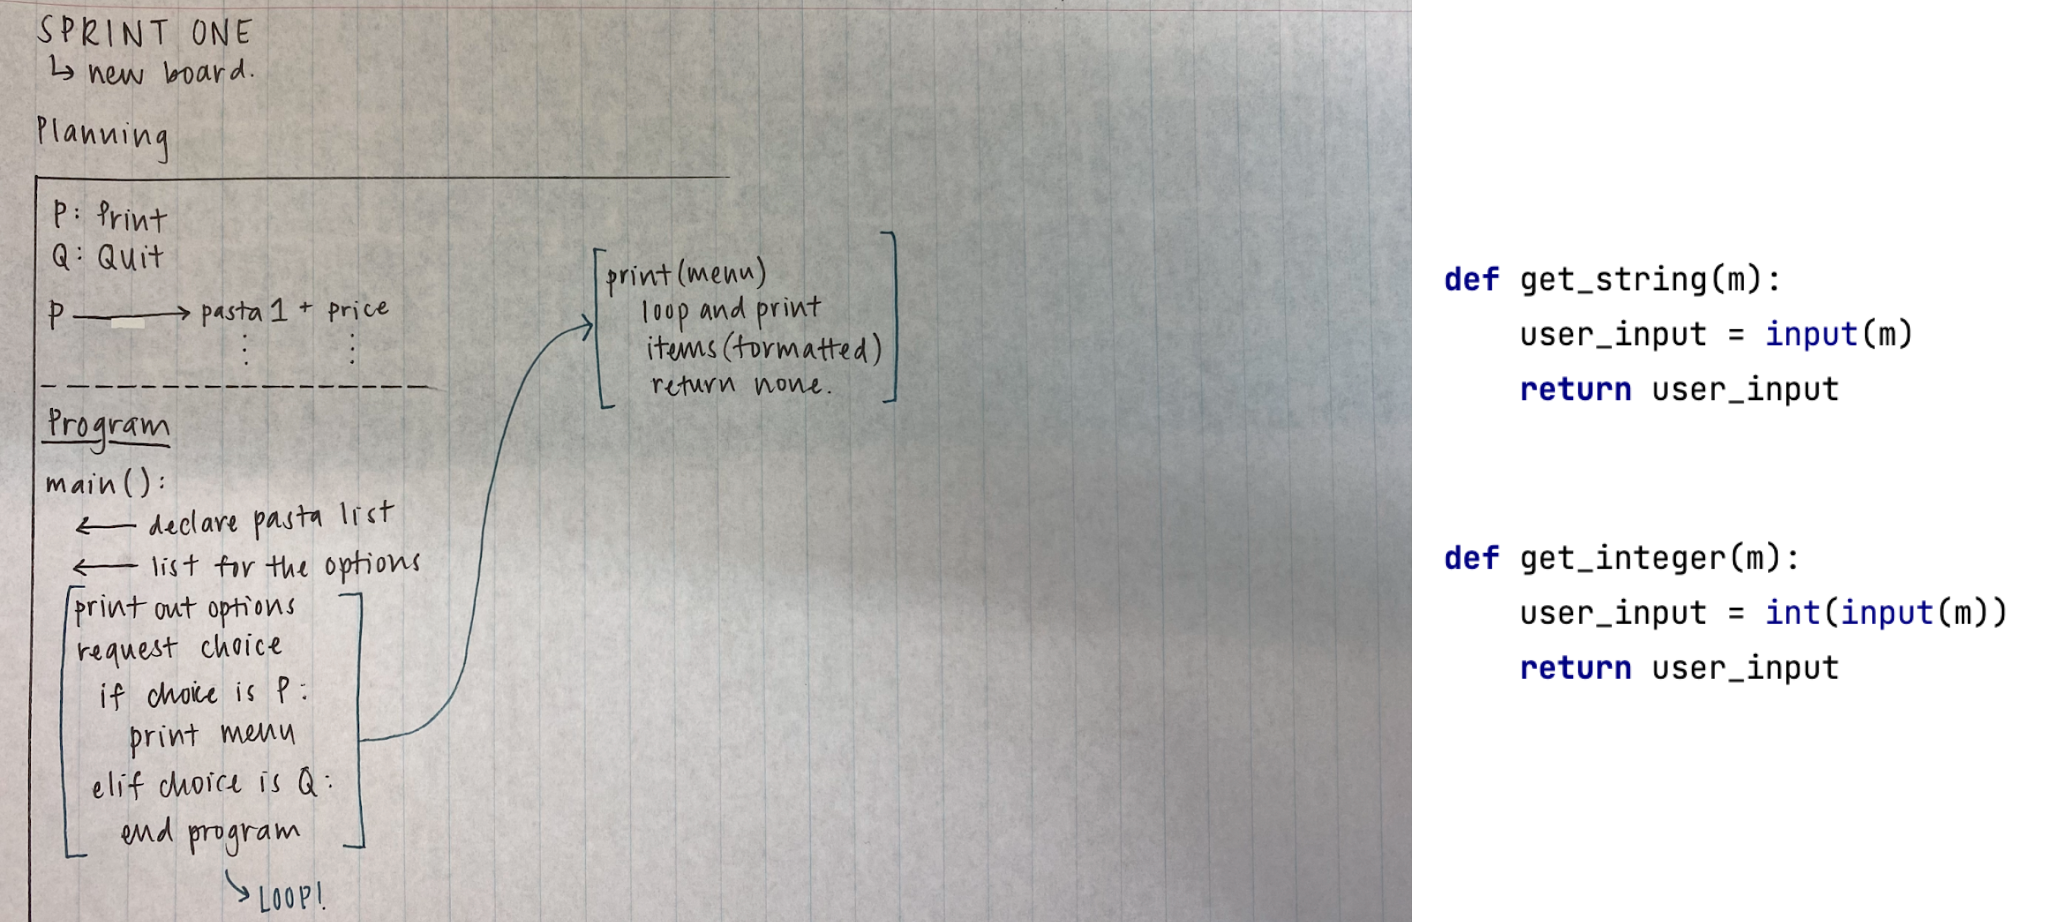 SPRINT ONE
↳ new board.
Planning
P: Print
Q: Quit
P → pasta 1 + price
⋮ ⋮
Program
main():
← declare pasta list
← list for the options
print out options
request choice
if choice is P:
print menu
elif choice is Q:
end program
↘ LOOP!
print(menu)
loop and print
items(formatted)
return none.
def get_string(m):
user_input = input(m)
return user_input
def get_integer(m):
user_input = int(input(m))
return user_input